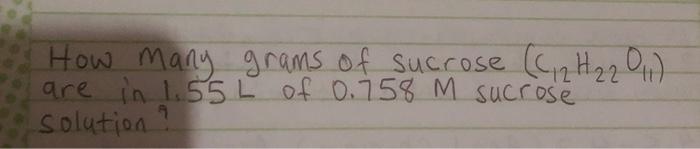 How many grams of sucrose (C₁₂H₂₂O₁₁)
are in 1.55 L of 0.758 M sucrose
solution?